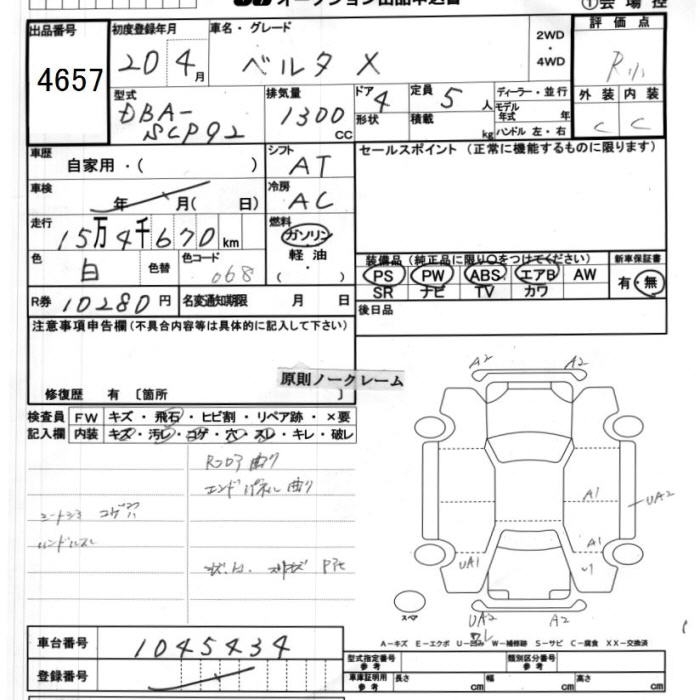 オークション出品申込書
①会場控
出品番号
4657
初度登録年月
20 4月
車名・グレード
ベルタ X
2WD
・
4WD
評価点
外装 内装
C C
型式
DBA-
SCP92
排気量
1300
CC
ドア 4
形状
定員 5 人
積載 kg
ディーラー・並行
モデル年式 年
ハンドル 左・右
車歴
自家用・( )
シフト
AT
セールスポイント (正常に機能するものに限ります)
車検
年 月( 日)
冷房
AC
走行
15万4千670km
燃料
ガソリン
・
軽油
・
( )
色
白
色替
色コード
068
装備品 (純正品に限り○をつけてください)
PS PW ABS エアB AW
SR ナビ TV カワ
新車保証書
有・無
R券 10280円
名変通知期限 月 日
後日品
注意事項申告欄(不具合内容等は具体的に記入して下さい)
原則ノークレーム
修復歴 有 〔箇所 〕
検査員
記入欄
FW キズ・飛石・ヒビ割・リペア跡・×要
内装 キズ・汚レ・コゲ・穴・スレ・キレ・破レ
Rフロア曲り
エンドパネル曲り
シートシミ コゲ穴
ハンドルスレ
A2 A2
A1
UA2
A1
UA1
UA2 A2
ワレ
スペア
A-キズ E-エクボ U-凹み W-補修跡 S-サビ C-腐食 XX-交換済
車台番号 1045434
登録番号
型式指定番号
参考
類別区分番号
参考
車庫証明用
参考
長さ cm
幅 cm
高さ cm